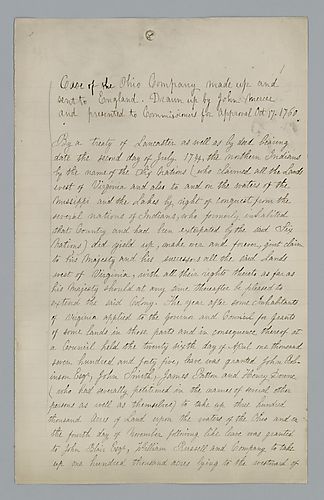 1
Case of the Ohio Company made up and
sent to England. Drawn up by John Mercer
and presented to Commissioners for approval Oct 17. 1760.
By a treaty of Lancaster as well as by deed bearing
date the second day of July 1744, the northern Indians
by the name of the Six Nations (who claimed all the Lands
west of Virginia and also to and on the waters of the
Missippi and the Lakes by right of conquest from the
several nations of Indians, who formerly inhabited
that Country and had been extirpated by the said Six
Nations) did yield up, make over and forever, quit claim
to his Majesty and his successors all the said Lands
west of Virginia, with all their rights thereto as far as
his Majesty should at any time thereafter be pleased to
extend the said Colony. The year after some Inhabitants
of Virginia applied to the Governor and Council for grants
of some lands in those parts and in consequence thereof at
a Council held the twenty sixth day of April one thousand
seven hundred and forty five, leave was granted John Rob-
inson Esqr, John Smith, James Patton and Henry Downs
(who had severally petitioned in the names of several other
persons as well as themselves) to take up three hundred
thousand Acres of Land upon the waters of the Ohio and on
the fourth day of November following like leave was granted
to John Blair Esqr, William Russell and Company to take
up one hundred thousand acres lying to the westward of